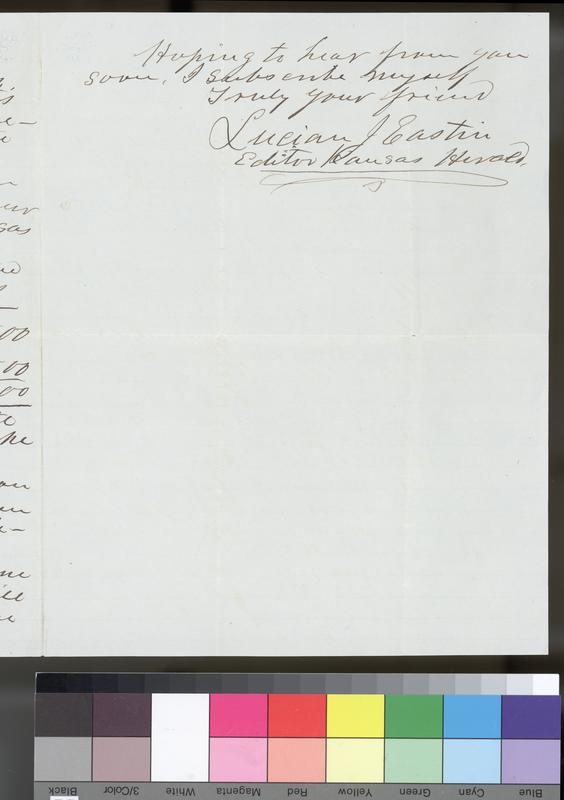 Hoping to hear from you
soon, I subscribe myself
Truly your friend
Lucian J Eastin
Editor Kansas Herald.
00
00
00
Black
3/Color
White
Magenta
Red
Yellow
Green
Cyan
Blue